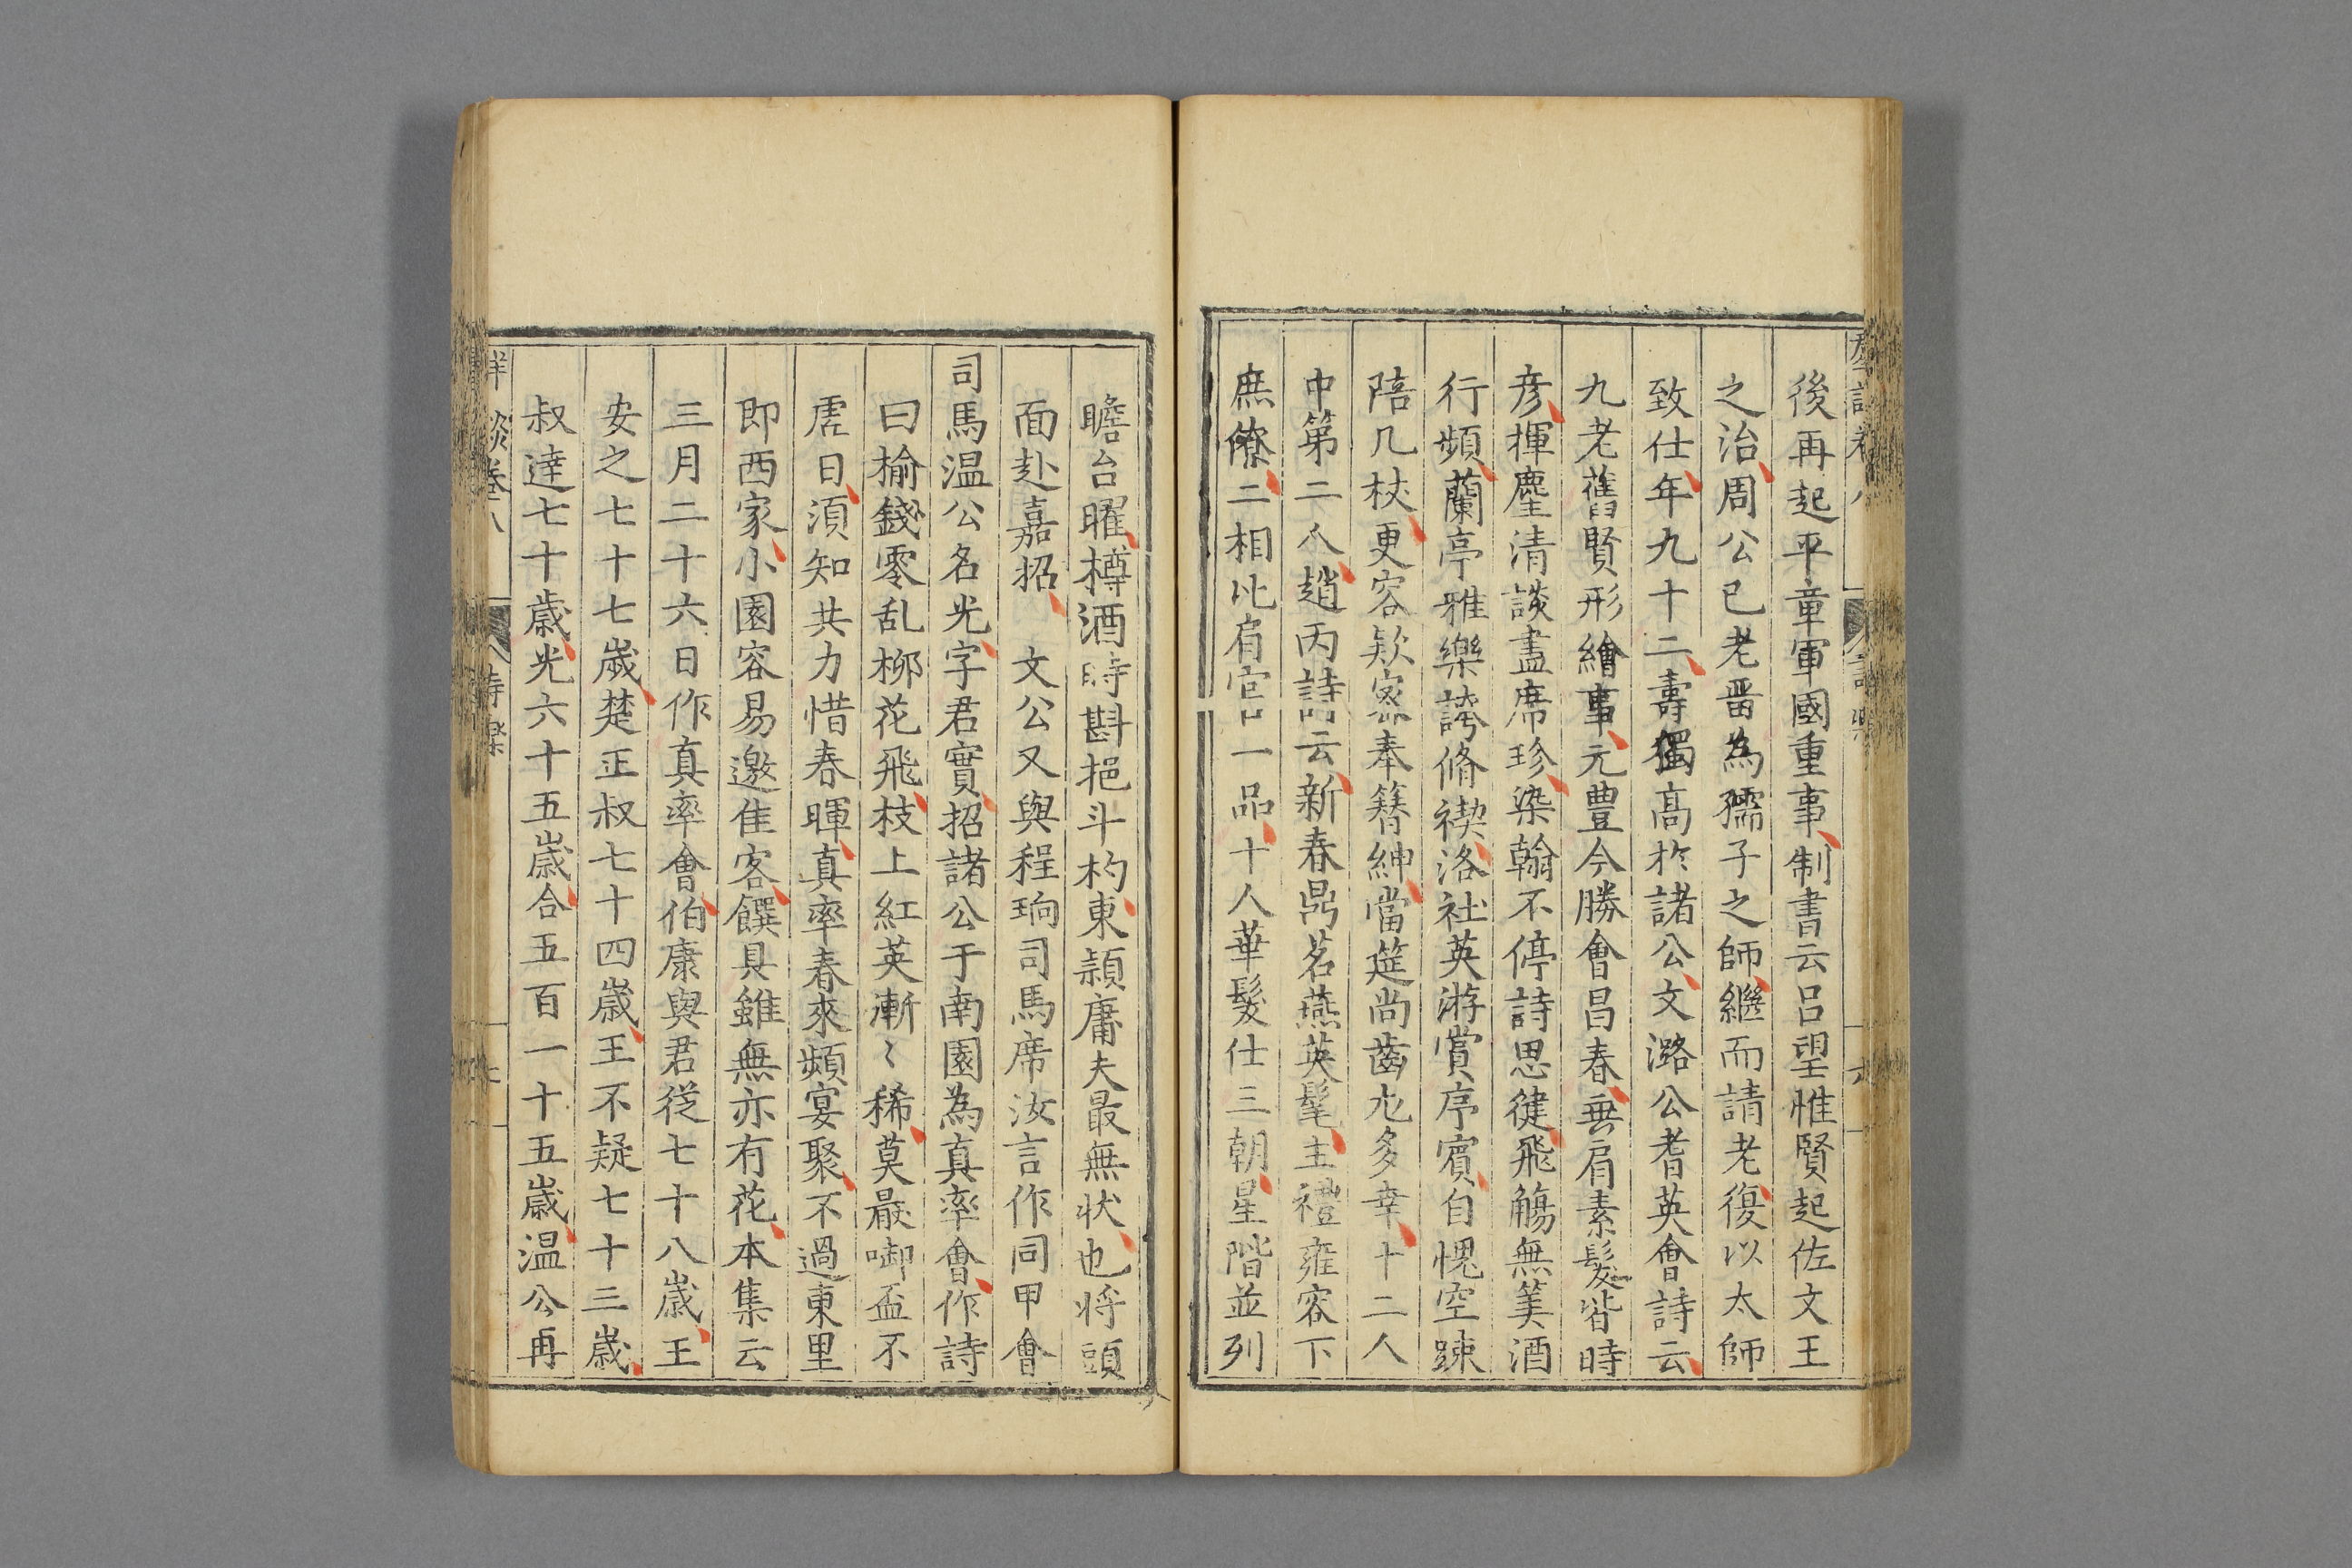 後再起平章軍國重事制書云呂望惟賢起佐文王
之治周公已老啚為孺子之師繼而請老復以太師
致仕年九十二壽獨高於諸公文潞公耆英會詩云
九老舊賢形繪事元豊今勝會昌春垂肩素髮皆時
彦揮麈清談盡席珍染翰不停詩思健飛觴無筭酒
行頻蘭亭雅樂誇脩禊洛社英游賞序賔自愧空踈
陪几杖更容欵宻奉簪紳當筵尚齒尤多幸十二人
中第二人趙丙詩云新春鼎茗燕英髦主禮雍容下
庶僚二相比肩官一品十人華髮仕三朝星階並列
瞻台曜樽酒時斟挹斗杓東頴庸夫最無状也将頭
面赴嘉招 文公又與程珦司馬席汝言作同甲會
司馬温公名光字君實招諸公于南園為真率會作詩
曰榆錢零乱柳花飛枝上紅英漸〻稀莫厭啣盃不
虚日須知共力惜春暉真率春來頻宴聚不過東里
即西家小園容易邀佳客饌具雖無亦有花本集云
三月二十六日作真率會伯康與君從七十八歳王
安之七十七歳楚正叔七十四歳王不疑七十三歳
叔達七十歳光六十五歳合五百一十五歳温公再